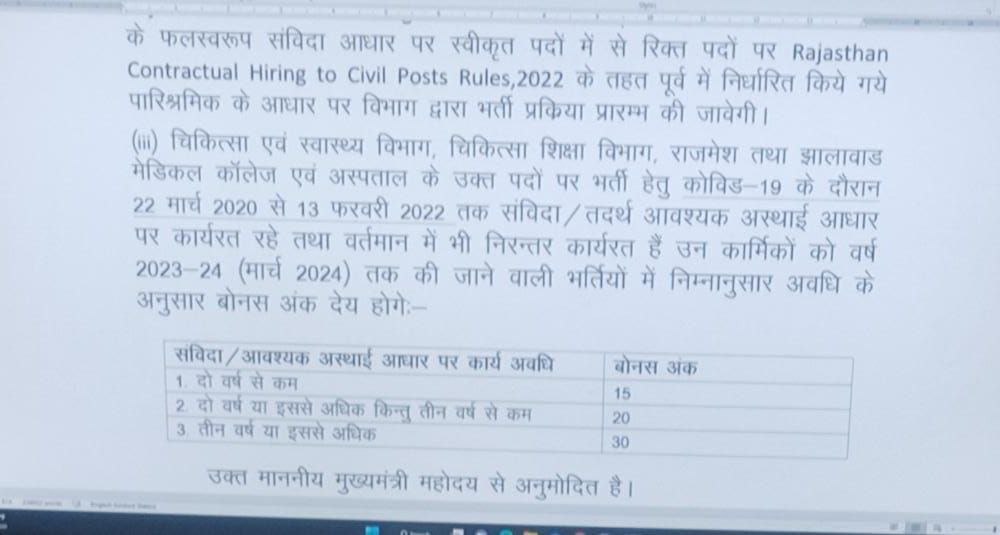 के फलस्वरूप संविदा आधार पर स्वीकृत पदों में से रिक्त पदों पर Rajasthan
Contractual Hiring to Civil Posts Rules,2022 के तहत पूर्व में निर्धारित किये गये
पारिश्रमिक के आधार पर विभाग द्वारा भर्ती प्रकिया प्रारम्भ की जावेगी।
(iii) चिकित्सा एवं स्वास्थ्य विभाग, चिकित्सा शिक्षा विभाग, राजमेश तथा झालावाड
मेडिकल कॉलेज एवं अस्पताल के उक्त पदों पर भर्ती हेतु कोविड–19 के दौरान
22 मार्च 2020 से 13 फरवरी 2022 तक संविदा/तदर्थ आवश्यक अस्थाई आधार
पर कार्यरत रहे तथा वर्तमान में भी निरन्तर कार्यरत हैं उन कार्मिकों को वर्ष
2023–24 (मार्च 2024) तक की जाने वाली भर्तियों में निम्नानुसार अवधि के
अनुसार बोनस अंक देय होगेः–
संविदा/आवश्यक अस्थाई आधार पर कार्य अवधि बोनस अंक
1. दो वर्ष से कम 15
2. दो वर्ष या इससे अधिक किन्तु तीन वर्ष से कम 20
3. तीन वर्ष या इससे अधिक 30
उक्त माननीय मुख्यमंत्री महोदय से अनुमोदित है।